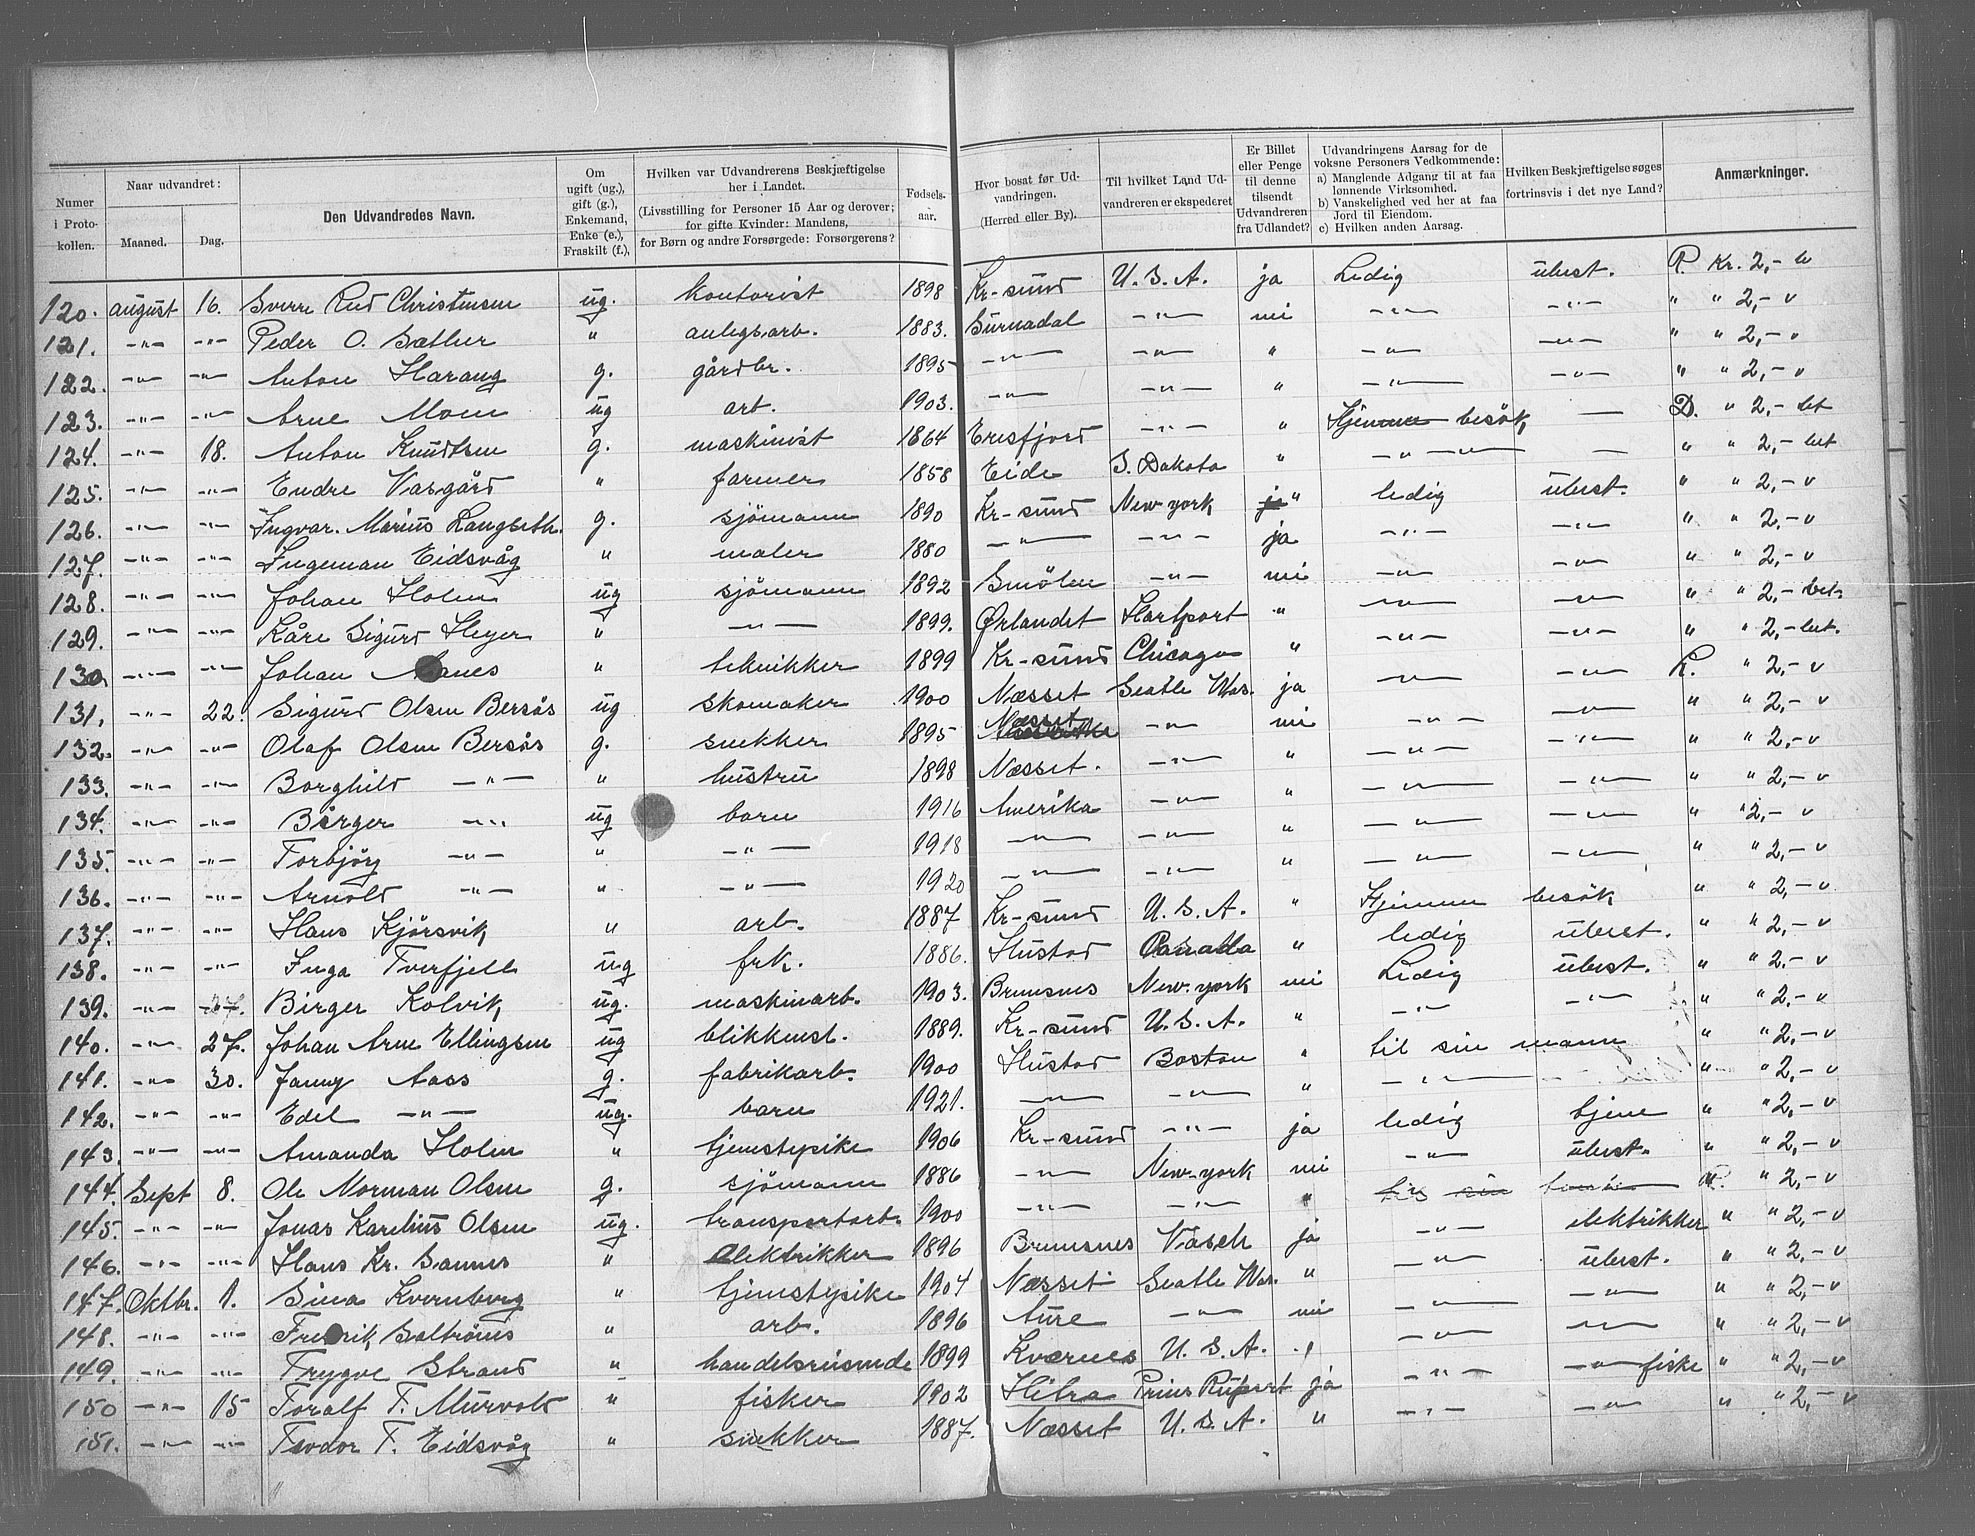 Numer i Protokollen. | Naar udvandret: Maaned. | Dag. | Den Udvandredes Navn. | Om ugift (ug.), gift (g.), Enkemand, Enke (e.), Fraskilt (f.), | Hvilken var Udvandrerens Beskjæftigelse her i Landet. (Livsstilling for Personer 15 Aar og derover; for gifte Kvinder: Mandens, for Børn og andre Forsørgede: Forsørgerens? | Fødselsaar. | Hvor bosat før Udvandringen. (Herred eller By). | Til hvilket Land Udvandreren er ekspederet | Er Billet eller Penge til denne tilsendt Udvandreren fra Udlandet? | Udvandringens Aarsag for de voksne Personers Vedkommende: a) Manglende Adgang til at faa lønnende Virksomhed. b) Vanskelighed ved her at faa Jord til Eiendom. c) Hvilken anden Aarsag. | Hvilken Beskjæftigelse søges fortrinsvis i det nye Land? | Anmærkninger.
120. august 16. Sverre Rud Christensen ug. kontorist 1898 Kr-sund U.S.A. ja Ledig ubest. R. Kr. 2,-
121. -"- -"- Peder O. Sæther " anlegsarb. 1883. Surnadal -"- nei -"- -"- " " 2,- v
122. -"- -"- Anton Harang g. gårdbr. 1895 -"- -"- " -"- -"- " " 2,- v
123. -"- -"- Arne Moen ug arb. 1903. -"- -"- " -"- -"- " " 2,- v
124. -"- 18. Anton Knudtsen g. maskinist 1864 Eresfjord -"- " Hjemme besök — D. " 2,- bet
125. -"- -"- Endre Vasgård " farmer 1858 Eide S. Dakota " -"- — " " 2,- bet
126. -"- -"- Ingvar. Marius Langseth. g. sjömann 1890 Kr-sund New york " ledig ubest. " " 2,- v
127. -"- -"- Ingeman Eidsvåg " maler 1880 -"- -"- ja -"- -"- " " 2,- v
128. -"- -"- Johan Holm ug sjömann 1892 Smölen -"- nei -"- -"- " " 2,- v
129. -"- -"- Kåre Sigurd Heyer " -"- 1899. Ørlandet Hartport " -"- -"- " " 2,- bet.
130. -"- -"- Johan Aanes " teknikker 1899 Kr-sund Chicago " -"- -"- " " 2,- bet.
131. -"- 22. Sigurd Olsen Bersås ug skomaker 1900 Næsset Seatle Was. ja -"- -"- R. " 2,- v
132. -"- -"- Olaf Olsen Bersås g. snekker 1895 Næsset -"- nei -"- -"- " " 2,- v
133. -"- -"- Borghild -"- " hustru 1898 Næsset. -"- " -"- -"- " " 2,- v
134. -"- -"- Birger -"- ug barn 1916 Amerika -"- " -"- -"- " " 2,- v
135. -"- -"- Torbjörg -"- " -"- 1918 -"- -"- " -"- -"- " " 2,- v
136. -"- -"- Arnold -"- " -"- 1920 -"- -"- " -"- -"- " " 2,- v
137. -"- -"- Hans Kjörsvik " arb. 1887 Kr-sund U.S.A. " Hjemme besök " " 2,- v
138. -"- -"- Inga Tverfjell ug frk. 1886. Hustad Canada " ledig ubest. " " 2,- v
139. -"- 27. Birger Kolvik ug. maskinarb. 1903. Bremsnes New-york nei Ledig ubest. " " 2,- v
140. -"- 27. Johan Arne Ellingsen ug blikkensl. 1889. Kr-sund U.S.A. " -"- -"- " " 2,- v
141. -"- 30. Jenny Aass g. fabrikarb. 1900 Hustad Boston " til sin mann " " 2,- v
142. -"- -"- Edel -"- ug. barn 1921. -"- -"- " -"- " " 2,- v
143. -"- -"- Amanda Holm " tjenestepike 1906 Kr-sund -"- ja ledig tjene " " 2,- v
144. Sept 8. Ole Norman Olsen g. sjömann 1886 -"- New-york nei -"- ubest. " " 2,- v
145. -"- -"- Jonas Karelius Olsen ug. transportarb. 1900 -"- -"- " " 2,- v
146. -"- -"- Hans Kr. Sannes " elektrikker 1896 Bremsnes Vasch ja -"- elektrikker " " 2,- v
147. Oktbr. 1. Sina Kvernberg " tjenestepike 1904 Næsset Seatle Was. " -"- ubest. " " 2,- v
148. -"- -"- Fredrik Saltrönes " arb. 1896 Aure -"- nei -"- -"- " " 2,- v
149. -"- -"- Trygve Strand " handelsreisende 1899 Kvernes U.S.A. " -"- -"- " " 2,- v
150 -"- 15 Toralf T. Murvold " fisker 1902 Hitra Prins Rupert ja -"- -"- fiske " " 2,- v
151. -"- -"- Teodor T. Eidsvåg " snekker 1887. Næsset U.S.A. " -"- -"- " " 2,- v